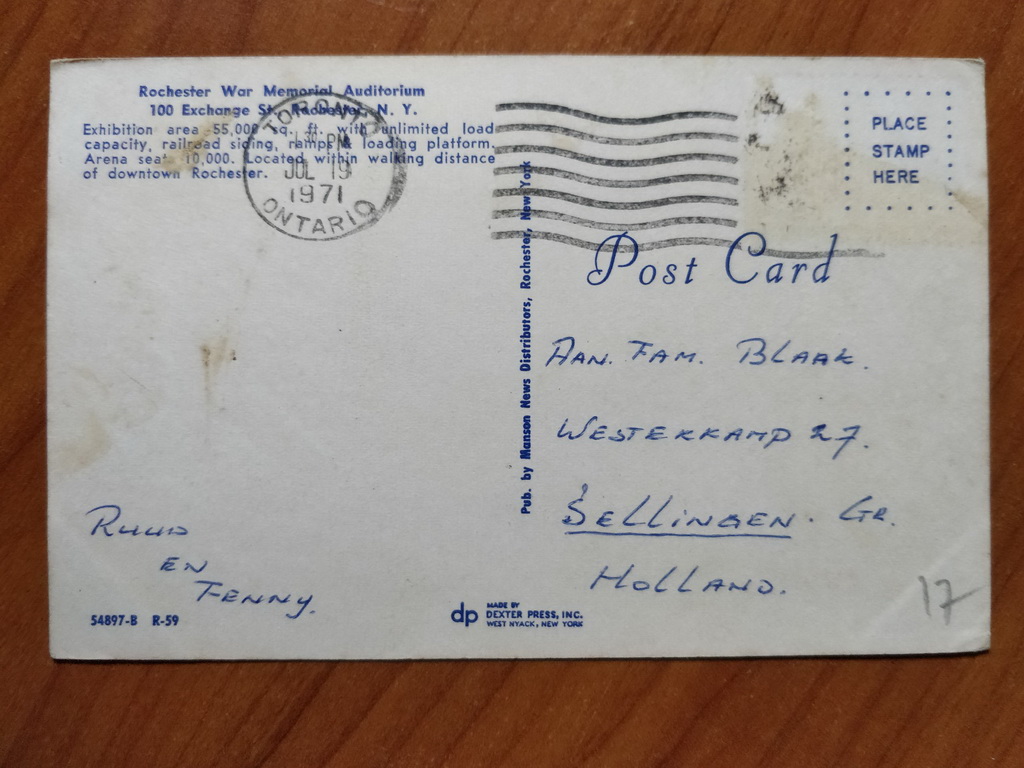 Rochester War Memorial Auditorium
100 Exchange St., Rochester, N. Y.
Exhibition area 55,000 sq. ft. with unlimited load
capacity, railroad siding, ramps & loading platform.
Arena seats 10,000. Located within walking distance
of downtown Rochester.
TORONTO
PM
JUL 19
1971
ONTARIO
PLACE
STAMP
HERE
Post Card
Pub. by Manson News Distributors, Rochester, New York
Aan. Fam. Blaak.
Westerkamp 27.
Sellingen. Gr.
Holland.
Ruud
en
Fenny.
54897-B R-59
dp
MADE BY
DEXTER PRESS, INC.
WEST NYACK, NEW YORK
17